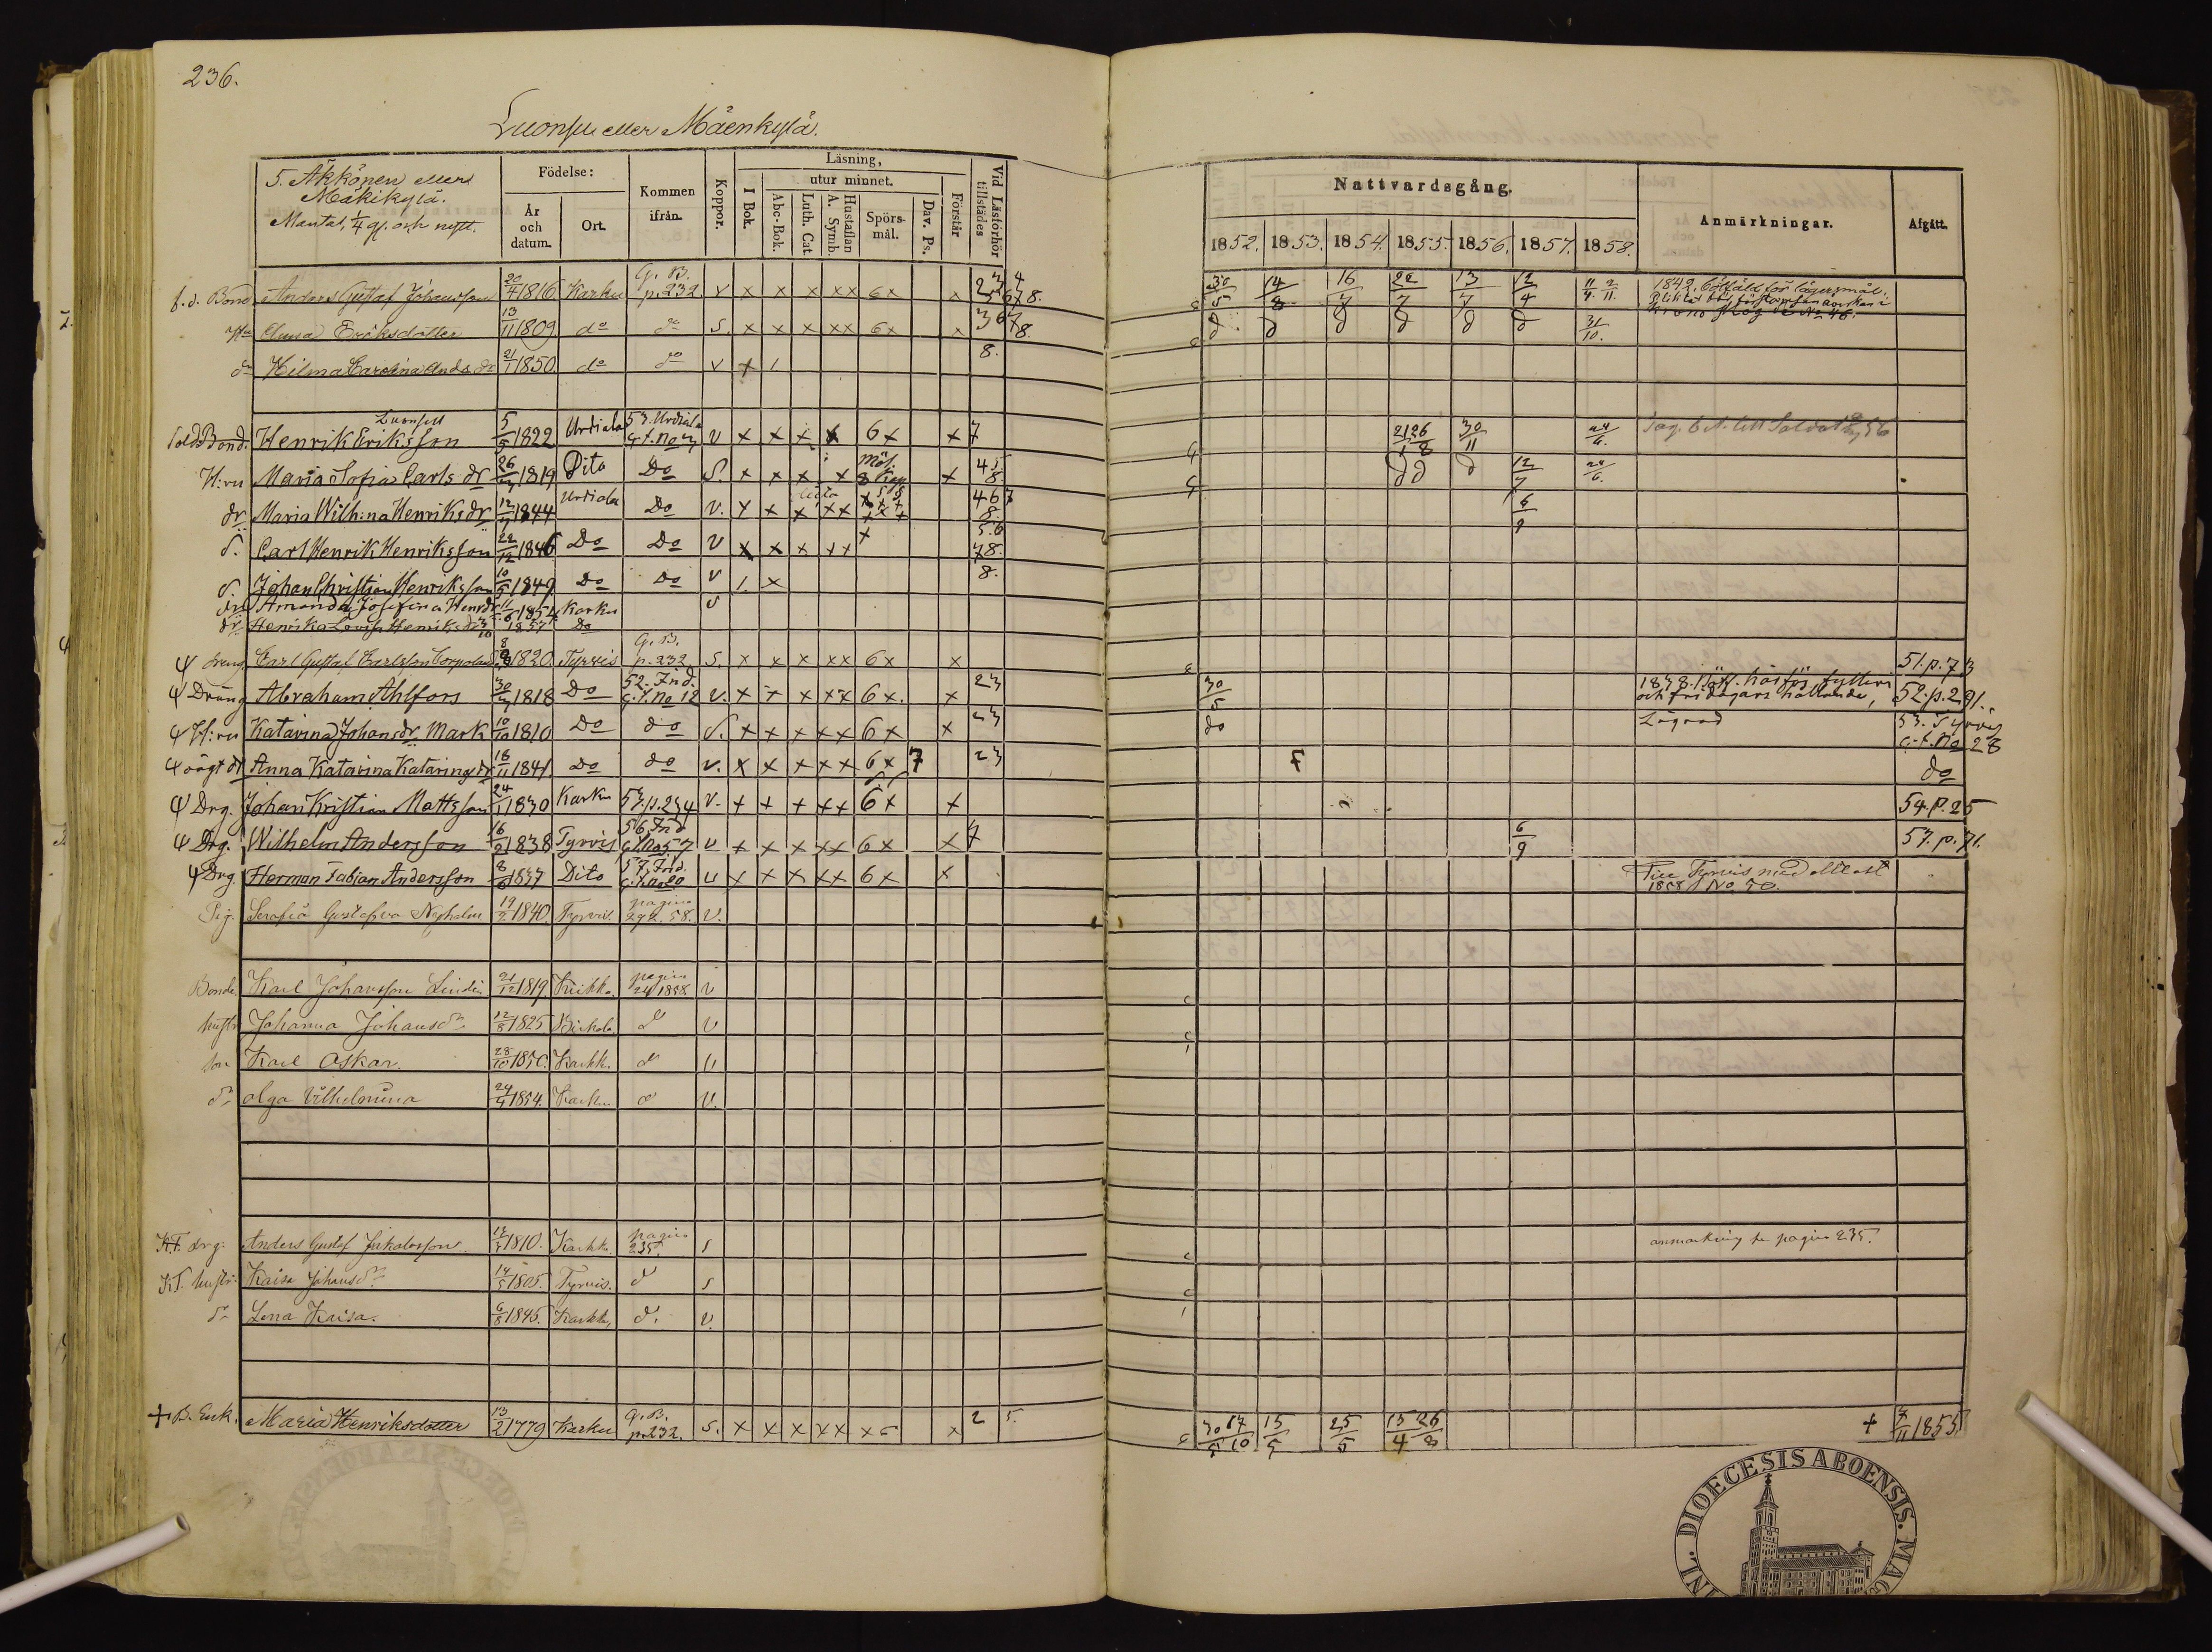 236.
Luonsu eller Mäenkylä.
5. Äkkönen eller
Mäkikylä.
Mantal, 1/4 gl. och nytt.
Födelse:
År och datum.
Ort.
Kommen ifrån.
Koppor.
Läsning,
I Bok.
utur minnet.
Abc-Bok.
Luth. Cat.
Hustaflan A. Symb.
Spörsmål.
Dav. Ps.
Förstår
Vid Läsförhör tillstädes
Nattvardsgång.
1852. 1853. 1854. 1855. 1856. 1857. 1858.
Anmärkningar.
Afgått.
f.d. Bond Anders Gustaf Johansson 20/4 1816 Karku G.B. p. 232. v x x x xx 6x x 30/5 14/8 16/7 22/7 13/7 12/4 11/4 2/11. 1842. bötfäld för lägersmål.
Anna Eriksdotter 13/11 1809 do do s. x x x xx 6x x 31/10.
dr Hilma Carolina Ands dr 21/1 1850 do do v 8.
Luonsu
Sold. Bond. Henrik Eriksson 5/5 1822 Urdiala 53. Urdiala v x x x x 6x x 7 30/11 24/6.
H:ru Maria Sofia Carls dr 26/7 1819 Dito Do S. x x x x x 12/7 24/6.
dr Maria Wilh:na Henriks dr 12/7 1844 Urdiala Do v. x x x xx 467 8. 6/9
S. Carl Henrik Henriksson 22/12 1846 Do Do v x x x xx 5.6 78.
S. Johan Christian Henriksson 10/5 1849 Do Do v 8.
dr Amanda Josefina Henr dr 1854 Karku v
dr Henrika Lovisa Henriks dr 1857 Do
dreng Carl Gustaf Karlsson 1820. Tyrvis G.B. p. 232 s. x x x xx 6x x 51. p. 73
Dräng Abraham Ahlfors 30/7 1818 Do 52. Ind. No 12 v. x x x xx 6x. x 23 30/5 52. p. 291.
H:ru Katarina Johans dr Mark 10/10 1810 Do do S. x x x xx 6x x 23 do Lägrad 53. Tyrvis No 28
oägt dr Anna Katarina Katarinas dr 18/11 1841. Do do v. x x x xx 6x 7 23 F do
Drg. Johan Kristian Mattsson 24/1 1830 Karku 53. p. 234 v. x x x xx 6x x 54. p. 25
Drg. Wilhelm Andersson 16/2 1838 Tyrvis 56. Ind No 57 v x x x xx 6x x 7 6/9 57. p. 71.
Drg. Herman Fabian Andersson 8/6 1837 Dito 57. Ind. No 20 v x x x xx 6x x Till Tyrvis med attest
1858 No 50.
Pig. Serafia Gustafva Nyholm 19/2 1840. Tyrvis. pagina 292. 58. v.
Bonde Karl Johansson Lindin 21/12 1819 Kiikka pagina 24 1858. v
hustr Johanna Johansdr 12/8 1825 do v
son Karl Oskar. 28/10 1850. Karkk. do v
dr Olga Vilhelmina 24/4 1854. Karku do v.
K.T. drg. Anders Gustaf Jakobsson 1810. Karkk. pagina 235 s anmärkning se pagina 235.
K.T. hustr. Kaisa Johansdr 14/5 1805. Tyrvis. do s
dr Lena Kaisa. 6/8 1845. Karkk, do. v.
+ B. Enk. Maria Henriksdotter 13/2 1779 Karku G.B. p. 232. s. x x x xx x6 x 2 5. 30/5 17/10 15/5 25/5 15/4 26/8 + 7/11 1855.
DIOECESIS ABOENSIS.